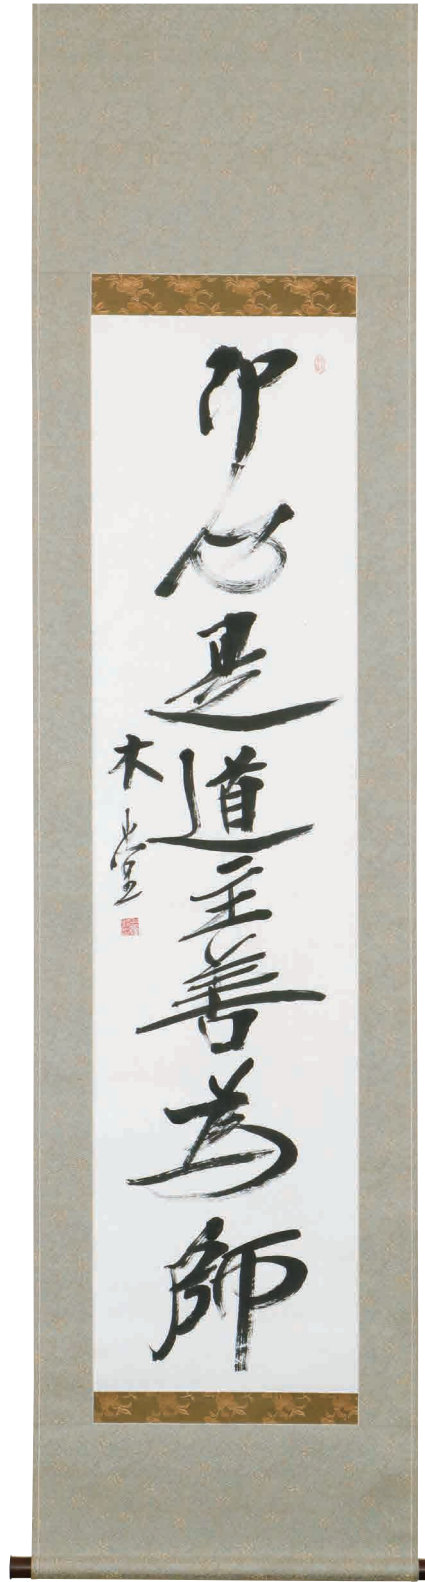 即心是道主善為師
木堂